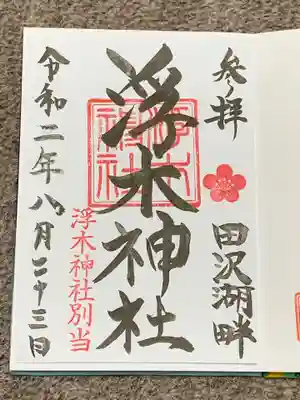 参拝
田沢湖畔
浮木神社
浮木神社別当
令和二年八月二十三日